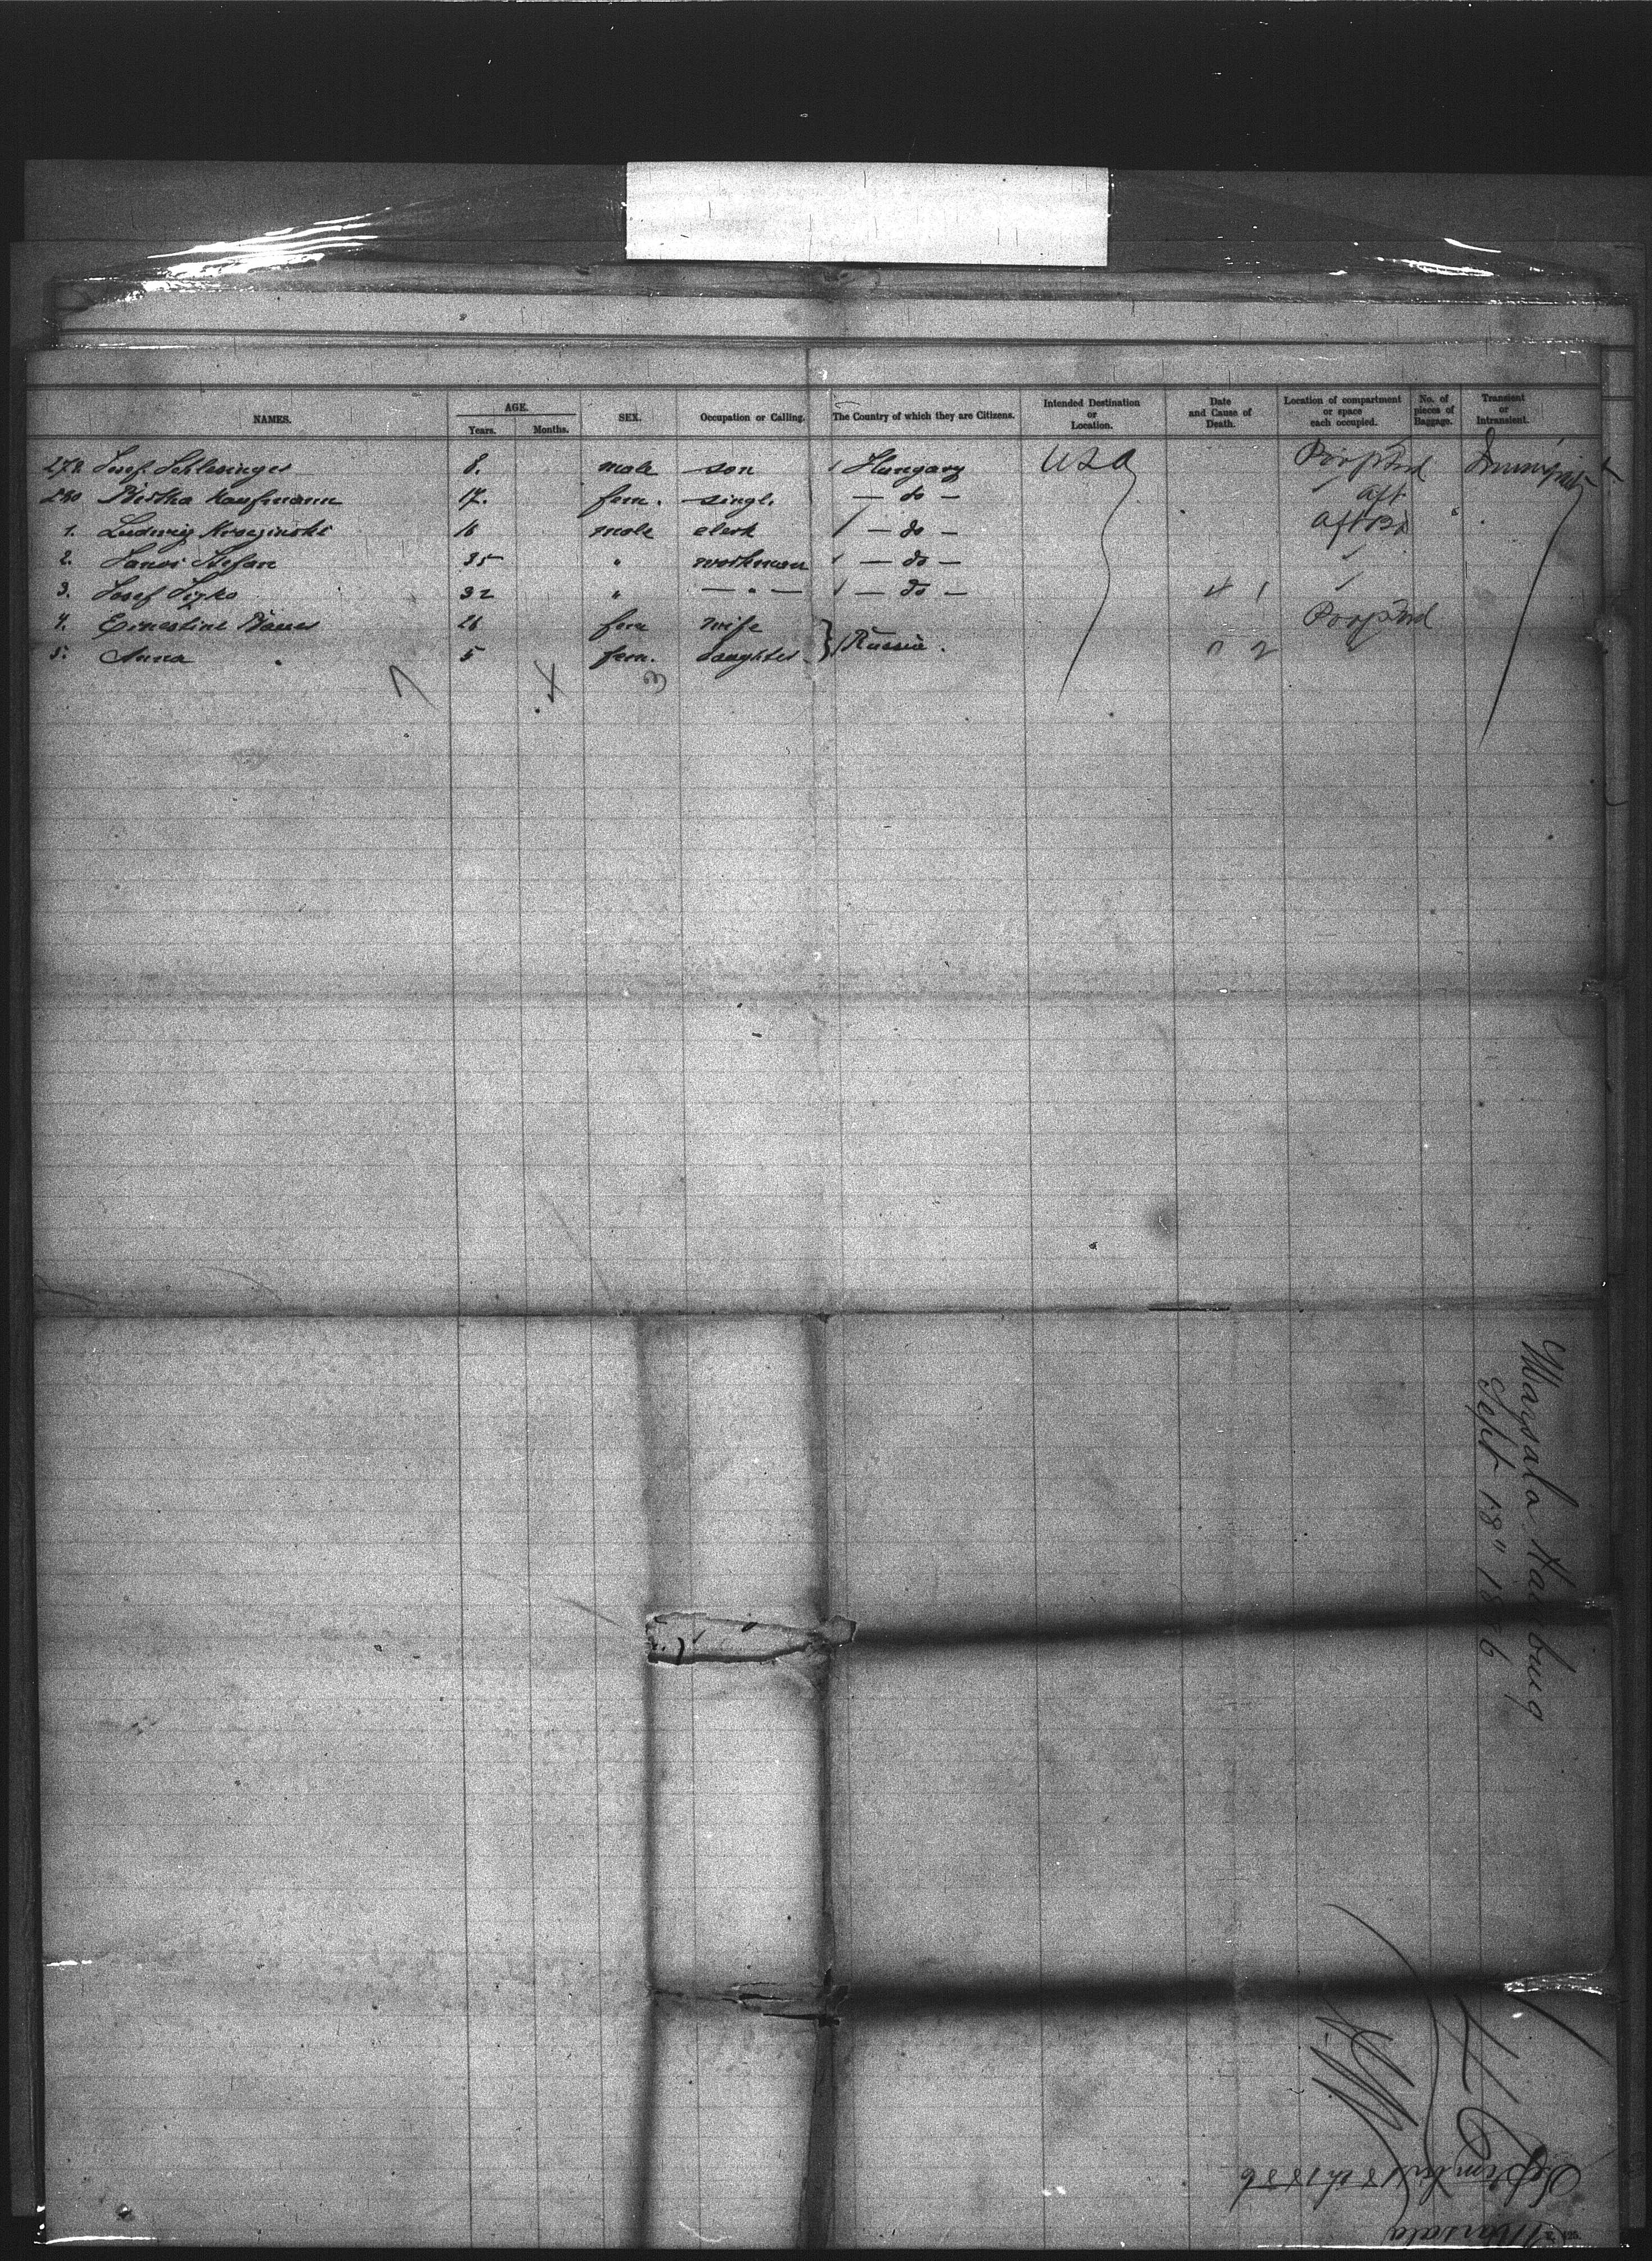 NAMES. AGE. Years. Months. SEX. Occupation or Calling. The Country of which they are Citizens. Intended Destination or Location. Date and Cause of Death. Location of compartment or space each occupied. No. of pieces of Baggage. Transient or Intransient.
Josef Schlesinger 8. male son Hungary USA
280 Bertha Kaufmann 17. fem. single — do — aft
1. Ludwig 16 male clerk — do —
2. Janos Stefan 35 " workman — do —
3. Josef 32 " — " — — do — 4 1
4. Ernestine Bauer 26 fem wife
5. Anna 5 fem. daughter Russia. 0 2
7 4 3
Marsala Hamburg
Sept 18" 1886
September 18th 1886
Marsala